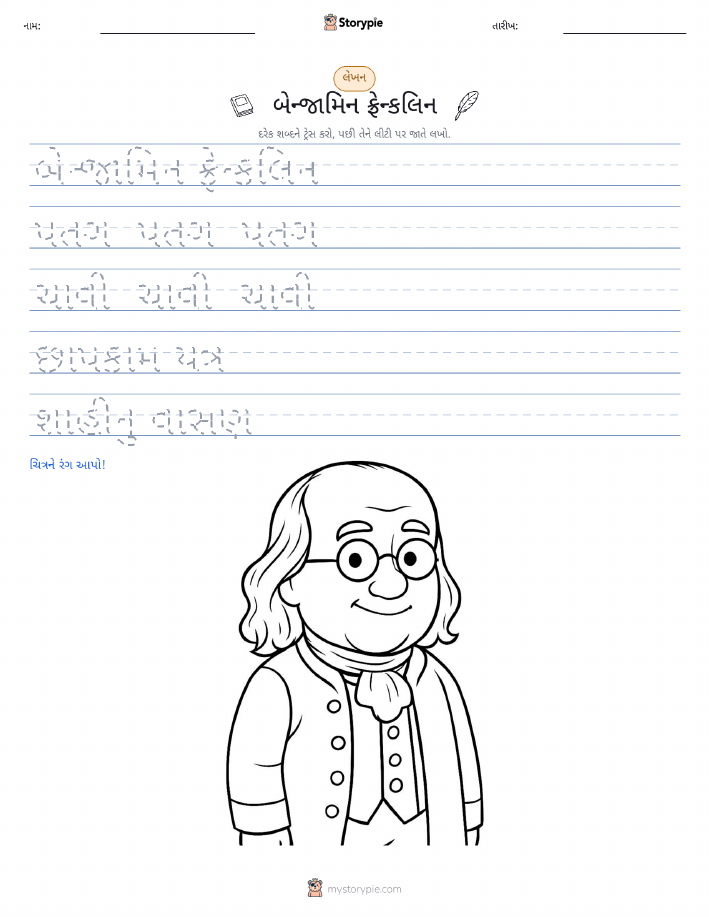 નામ:
Storypie
તારીખ:
લેખન
બેન્જામિન ફ્રેન્કલિન
દરેક શબ્દને ટ્રેસ કરો, પછી તેને લીટી પર જાતે લખો.
બેન્જામિન ફ્રેન્કલિન
પતંગ પતંગ પતંગ
ચાવી ચાવી ચાવી
છાપકામ યંત્ર
શાહીનું વાસણ
ચિત્રને રંગ આપો!
mystorypie.com